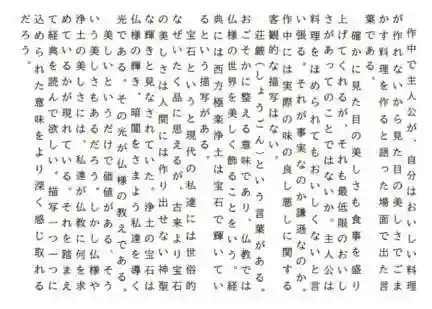 作中で主人公が、自分はおいしい料理
が作れないから見た目の美しさでごま
かす料理を作ると語った場面で出た言
葉である。
確かに見た目の美しさも食事を盛り
上げてくれるが、それも最低限のおいし
さがあってのことではないか。主人公は
料理をほめられてもおいしくないと言
い張る。それが事実なのか謙遜なのか。
作中には実際の味の良し悪しに関する
客観的な描写はない。
荘厳(しょうごん)という言葉がある。
おごそかに整える意味であり、仏教では
仏様の世界を美しく飾ることをいう。経
典には西方極楽浄土は宝石で輝いてい
るという描写がある。
宝石というと現代の私達には世俗的
なぜいたく品に思えるが、古来より宝石
の美しさは人間には作り出せない神聖
な輝きと見なされていた。浄土の宝石は
仏様の輝き、暗闇をさまよう私達を導く
光である。その光が仏様の教えである。
美しいというだけで価値がある、そう
いう美しさもあるだろう。しかし仏様や
浄土の美しさには、私達が仏教に何を求
めているかが現れている。それを踏まえ
て経典を読んで欲しい。描写一つ一つに
込められた意味をより深く感じ取れる
だろう。